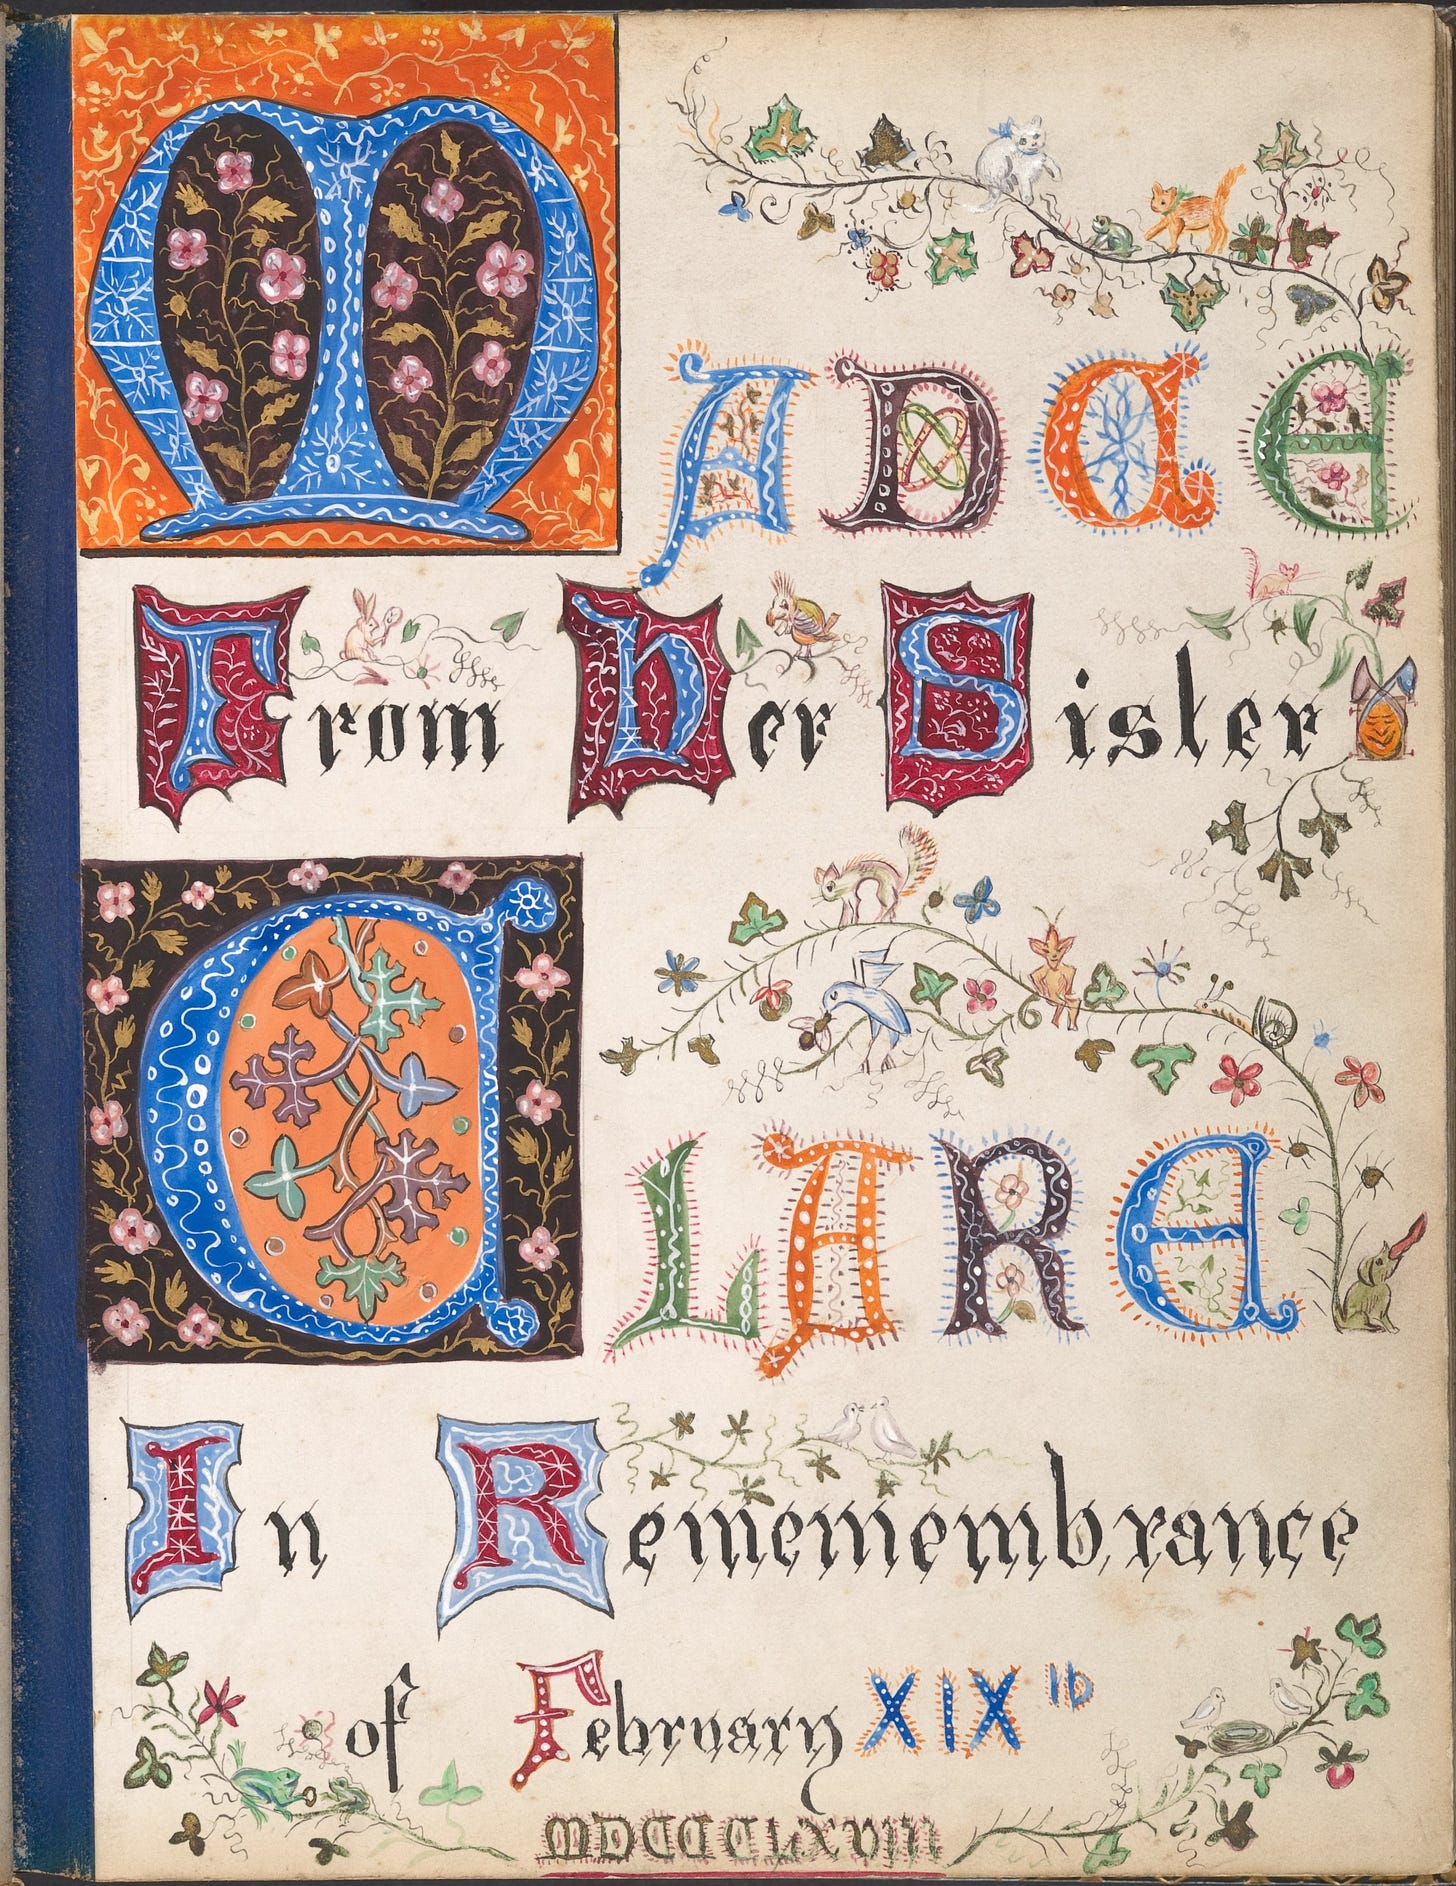 MADGE
From Her Sister
CLARE
In Remembrance
of February XIXth
MDCCCLXVIII